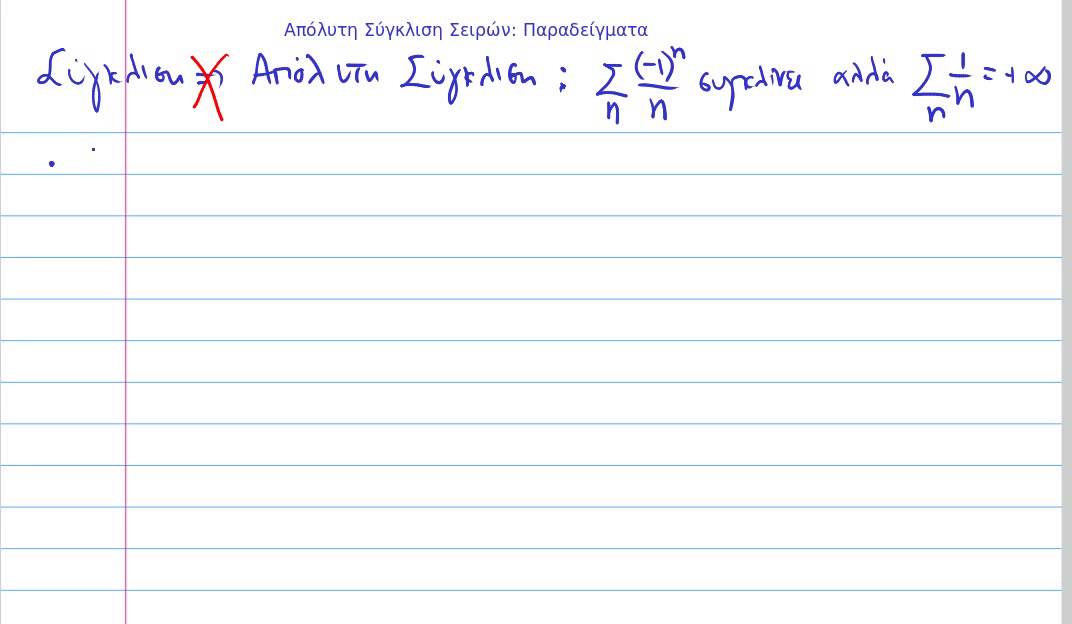 Απόλυτη Σύγκλιση Σειρών: Παραδείγματα
Σύγκλιση ⇏ Απόλυτη Σύγκλιση : ∑_n (-1)^n/n συγκλίνει αλλά ∑_n 1/n = +∞